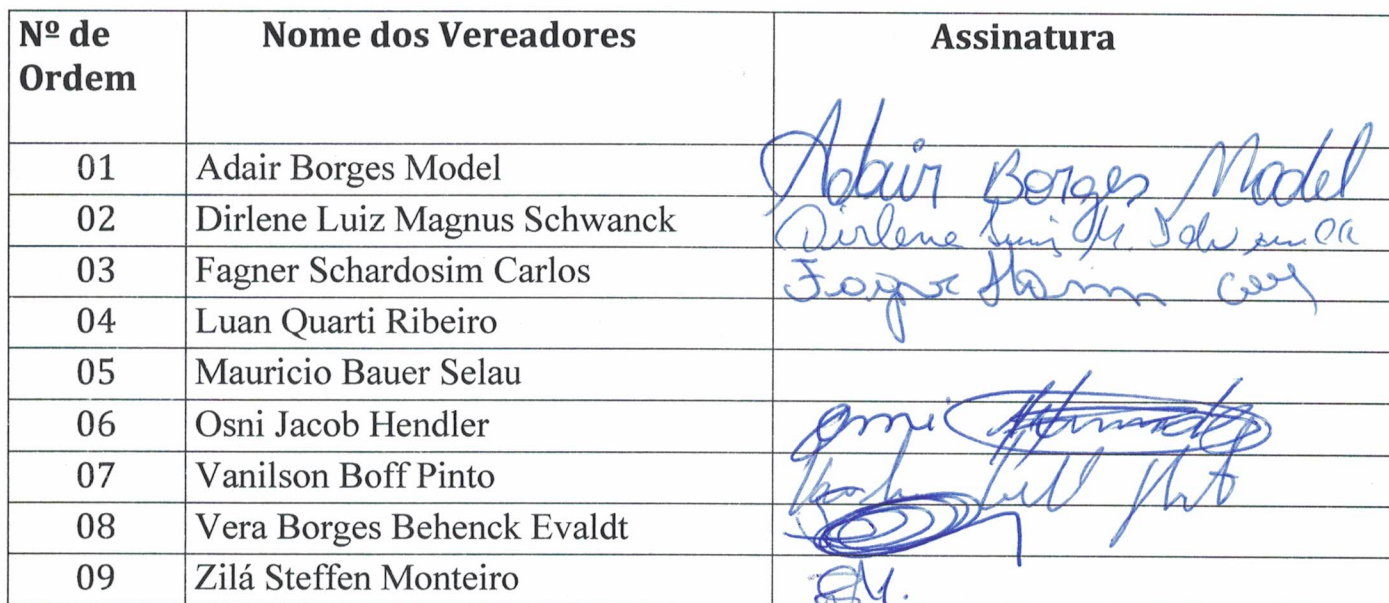 Nº de Ordem Nome dos Vereadores Assinatura
01 Adair Borges Model Adair Borges Model
02 Dirlene Luiz Magnus Schwanck Dirlene Luiz M. Schwanck
03 Fagner Schardosim Carlos Fagner
04 Luan Quarti Ribeiro
05 Mauricio Bauer Selau
06 Osni Jacob Hendler Osni
07 Vanilson Boff Pinto
08 Vera Borges Behenck Evaldt
09 Zilá Steffen Monteiro